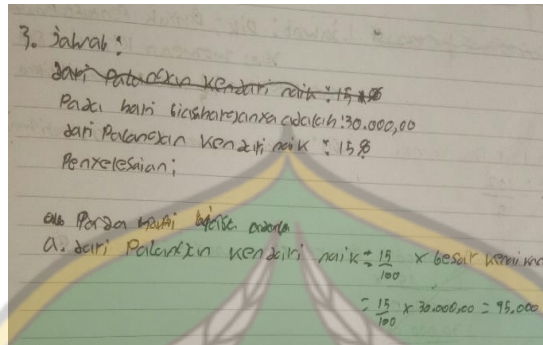 3. Jawab :
dari Palangan kendari naik : 15 %
Pada hari biasa harganya adalah : 30.000,00
dari Palangan kendiri naik : 15 %
Penyelesaian ;
hari
a. dari Palangan kendiri naik = 15/100 x besar
= 15/100 x 30.000,00 = 95.000